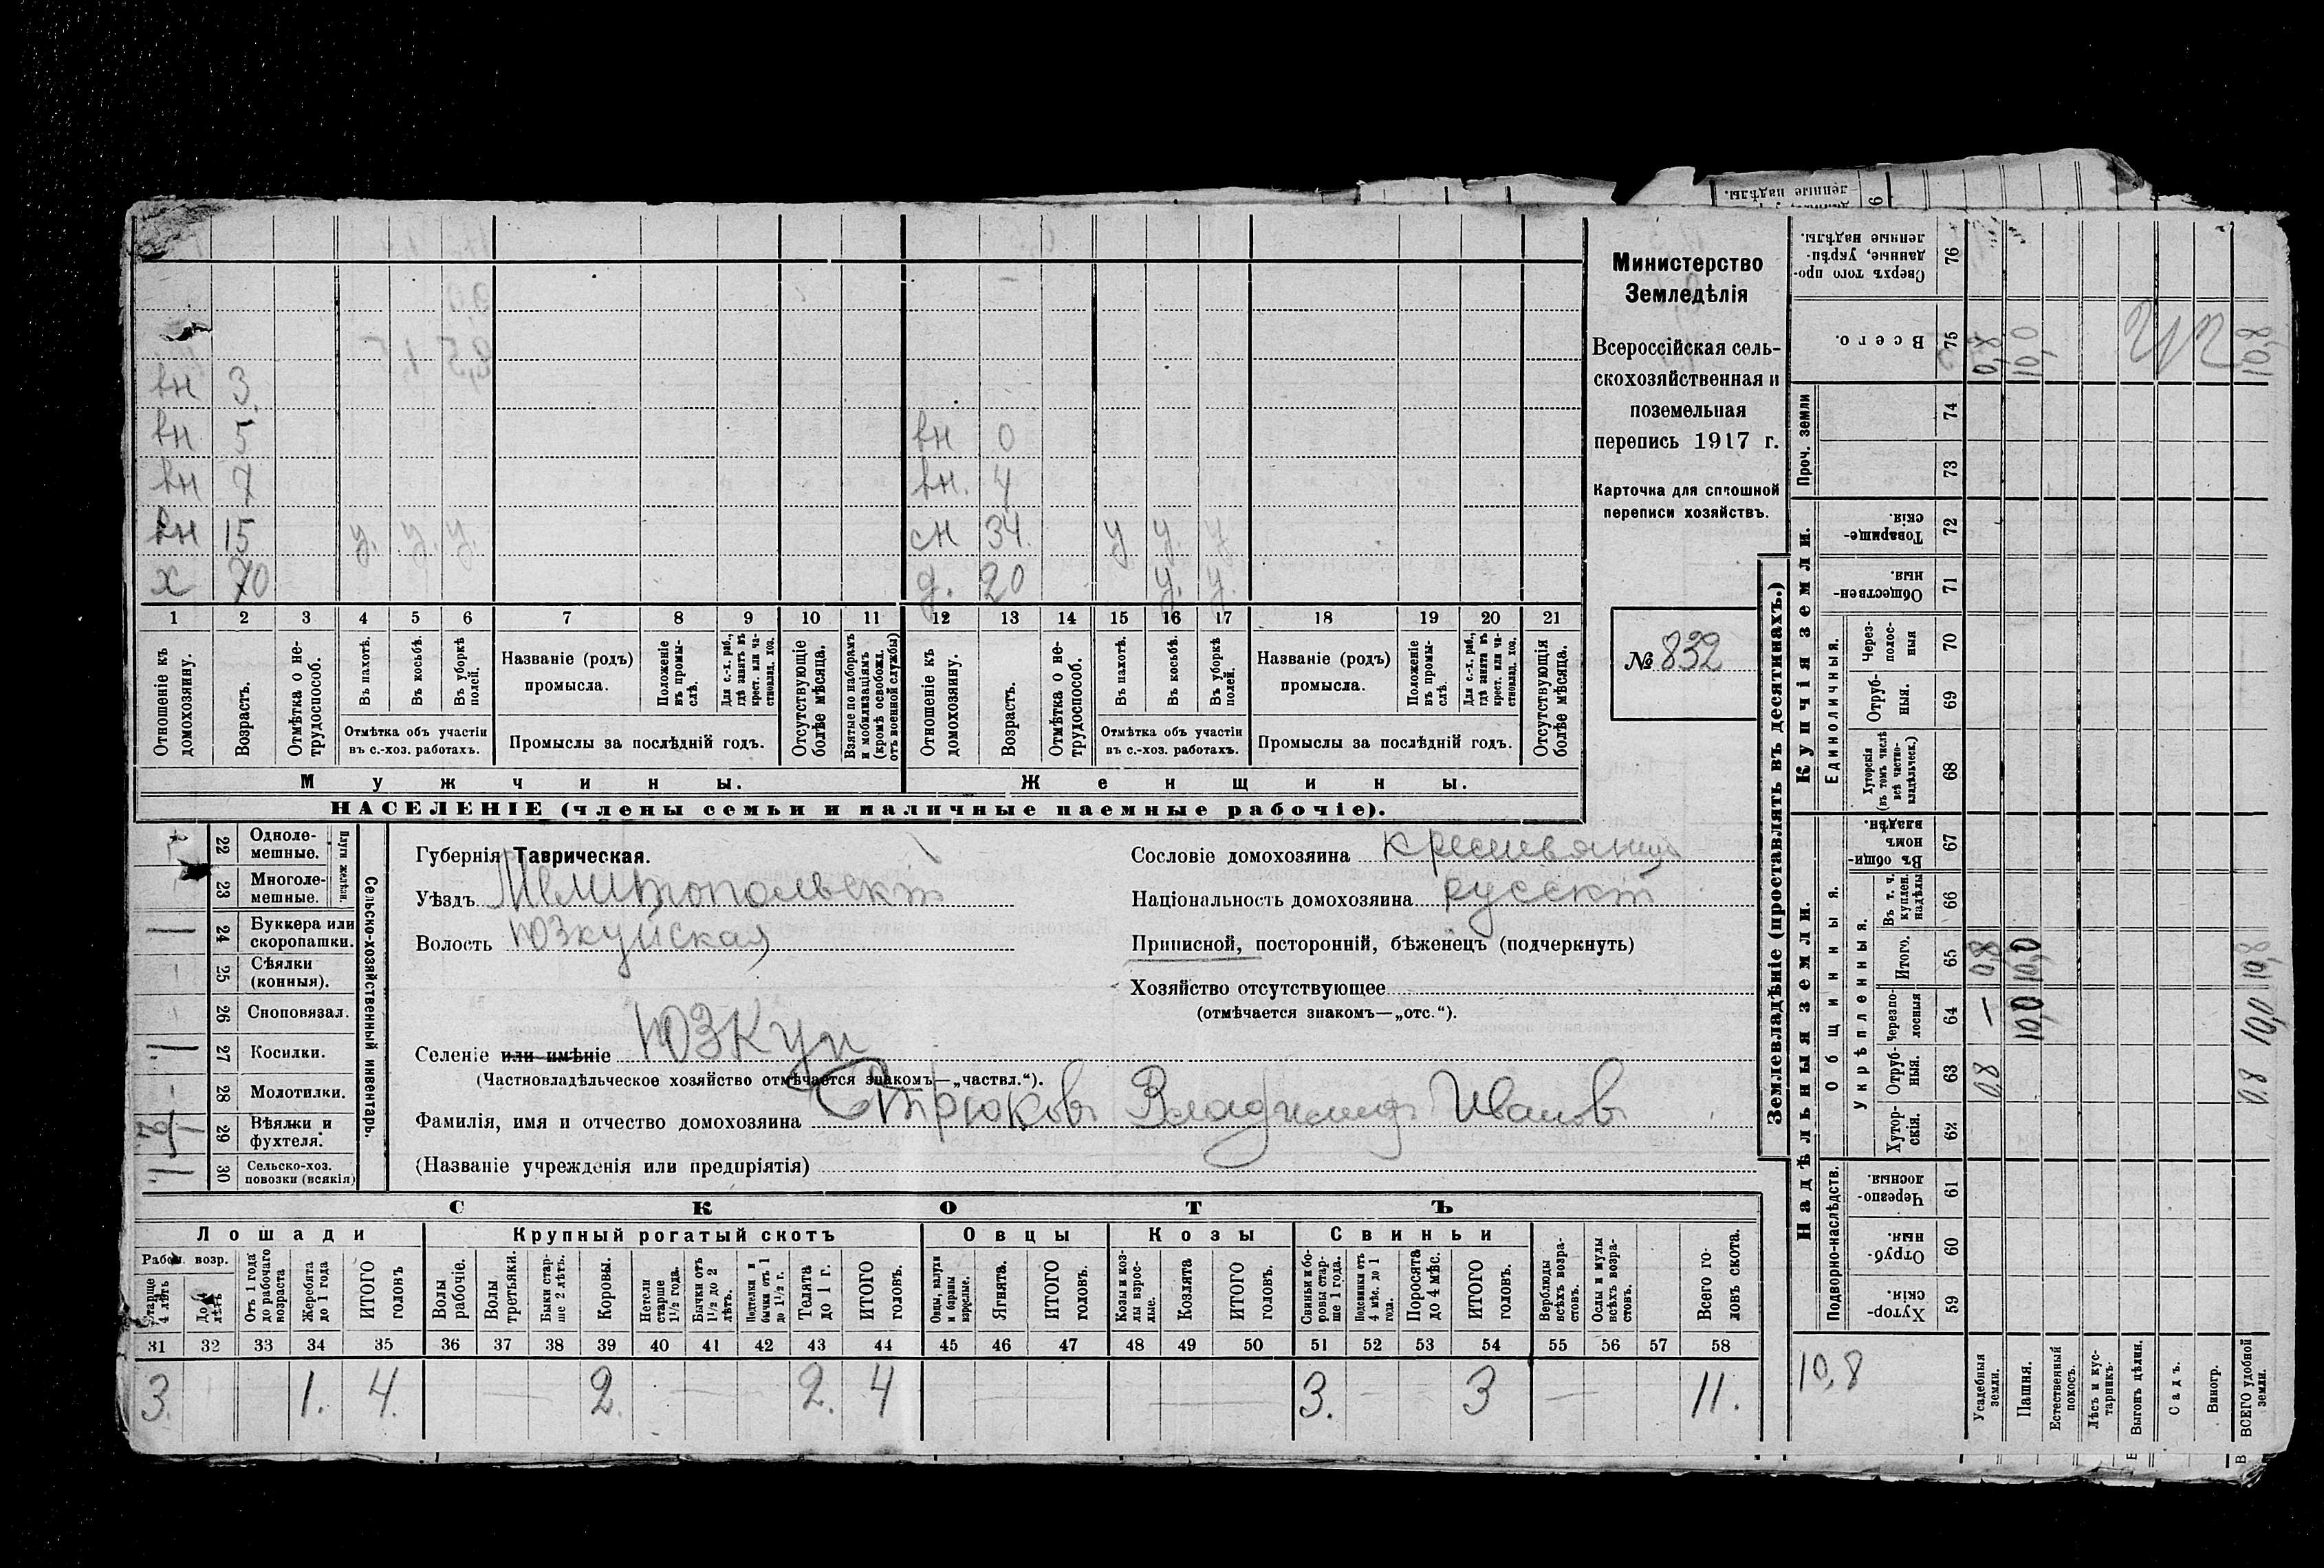 Министерство
Земледѣлія
Всероссійская сель-
скохозяйственная и
поземельная
перепись 1917 г.
Карточка для сплошной
переписи хозяйствъ.
№ 832
вн 3
вн 5 вн 0
вн 7 вн. 4
вн 15 у. у. у. сн 34. у у. у.
х 70 д. 20 у. у.
1 2 3 4 5 6 7 8 9 10 11 12 13 14 15 16 17 18 19 20 21
Отношеніе къ домохозяину.
Возрастъ.
Отмѣтка о не-трудоспособ.
Въ пахотѣ.
Въ косьбѣ.
Въ уборкѣ полей.
Отмѣтка объ участіи
въ с.-хоз. работахъ.
Названіе (родъ)
промысла.
Положеніе въ промы-слѣ.
Для с.-х. раб., гдѣ занятъ въ крест. или ча-стновлад. хоз.
Промыслы за послѣдній годъ.
Отсутствующіе болѣе мѣсяца.
Взятые по наборамъ и мобилизаціямъ (кромѣ освобожд. отъ военной службы)
Отношеніе къ домохозяину.
Возрастъ.
Отмѣтка о не-трудоспособ.
Въ пахотѣ.
Въ косьбѣ.
Въ уборкѣ полей.
Отмѣтка объ участіи
въ с.-хоз. работахъ.
Названіе (родъ)
промысла.
Положеніе въ промы-слѣ.
Для с.-х. раб., гдѣ занята въ крест. или ча-стновлад. хоз.
Промыслы за послѣдній годъ.
Отсутствующія болѣе мѣсяца.
Мужчины. Женщины.
НАСЕЛЕНІЕ (члены семьи и наличные наемные рабочіе).
Сельско-хозяйственный инвентарь.
Плуги желѣзн.
22 Одноле-мешные.
23 Многоле-мешные.
24 Буккера или скоропашки.
25 Сѣялки (конныя).
26 Сноповязал.
27 Косилки.
28 Молотилки.
29 Вѣялки и фухтеля.
30 Сельско-хоз. повозки (всякія)
Губернія Таврическая.
Уѣздъ Мелитопольскій
Волость Юзкуйская
Селеніе или имѣніе Юзкуи
(Частновладѣльческое хозяйство отмѣчается знакомъ—„частвл.“).
Фамилія, имя и отчество домохозяина Стрюковъ Владимиръ Ивановъ
(Названіе учрежденія или предпріятія)
Сословіе домохозяина крестьянинъ
Національность домохозяина русскій
Приписной, посторонній, бѣженецъ (подчеркнуть)
Хозяйство отсутствующее
(отмѣчается знакомъ—„отс.“).
СКОТЪ
Лошади Крупный рогатый скотъ Овцы Козы Свиньи
Рабоч. возр.
Старше 4 лѣтъ
До 4 лѣтъ
Отъ 1 года до рабочаго возраста
Жеребята до 1 года
ИТОГО головъ
Волы рабочіе.
Волы третьяки.
Быки стар-ше 2 лѣтъ.
Коровы.
Нетели старше 1½ года.
Бычки отъ 1½ до 2 лѣтъ.
Подтелки и бычки отъ 1 до 1½ г.
Телята до 1 г.
ИТОГО головъ.
Овцы, валухи и бараны взрослые.
Ягнята.
ИТОГО головъ.
Козы и коз-лы взрос-лые.
Козлята
ИТОГО головъ.
Свиньи и бо-ровы стар-ше 1 года.
Подсвинки отъ 4 мѣс. до 1 года.
Поросята до 4 мѣс.
ИТОГО головъ.
Верблюды всѣхъ возра-стовъ.
Ослы и мулы всѣхъ возра-стовъ.
Всего го-ловъ скота.
31 32 33 34 35 36 37 38 39 40 41 42 43 44 45 46 47 48 49 50 51 52 53 54 55 56 57 58
3. 1. 4. 2. 2. 4 3. 3 11.
Землевладѣніе (проставлять въ десятинахъ.)
Надѣльныя земли. Купчія земли.
Подворно-наслѣдств.
Общинныя.
Укрѣпленныя.
Единоличныя.
Проч. земли
59 Хутор-скія.
60 Отруб-ныя.
61 Черезпо-лосныя.
62 Хутор-скія.
63 Отруб-ныя.
64 Черезпо-лосныя
65 Итого.
66 Въ т. ч. куплен. надѣлы
67 Въ общи-номъ владѣн.
68 Хуторскія (въ томъ числѣ всѣ частно-владѣльческ.)
69 Отруб-ныя.
70 Через-полос-ныя
71 Обществен-ныя.
72 Товарище-скія.
73
74
75 Всего.
76 Сверхъ того про-данные, укрѣп-ленные надѣлы.
10,8
Усадебныя земли. 0,8 — 0,8 0,8
Пашня. 10,0 10,0 10,0
Естественный покосъ.
Лѣсъ и кус-тарникъ.
Выгонъ цѣлин.
Садъ.
Виногр.
ВСЕГО удобной земли. 0,8 10,0 10,8 10,8
ленные надѣлы.